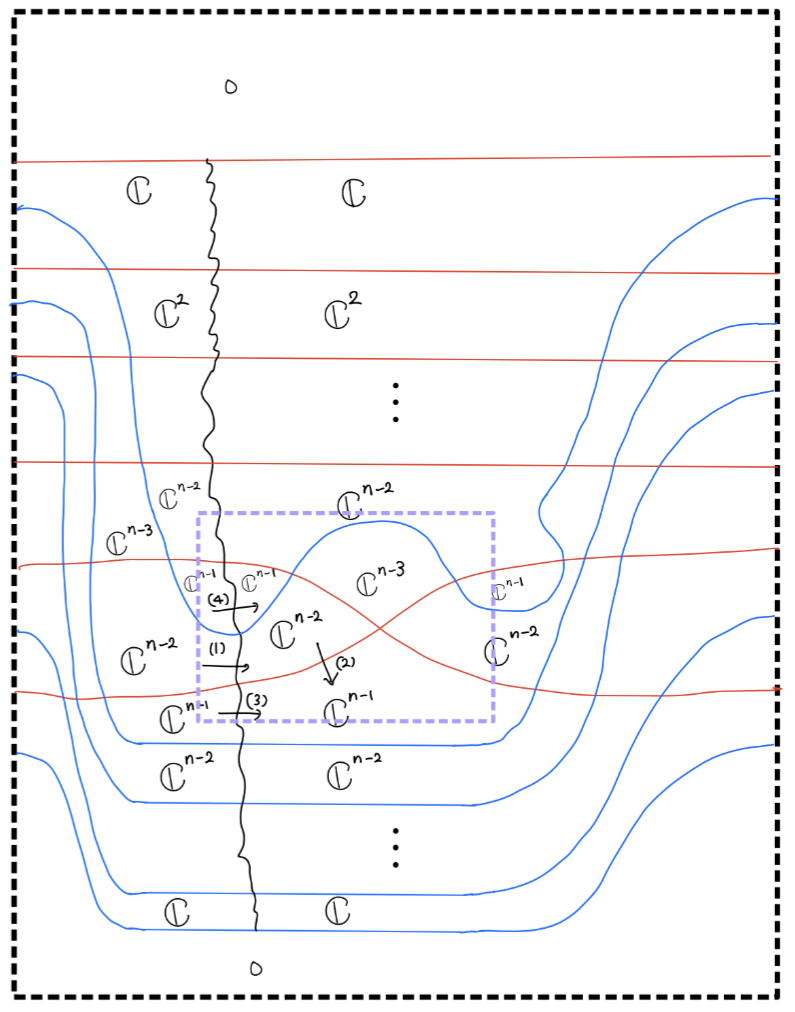 0
ℂ ℂ
ℂ² ℂ²
⋮
ℂⁿ⁻² ℂⁿ⁻²
ℂⁿ⁻³
ℂⁿ⁻¹ ℂⁿ⁻¹ ℂⁿ⁻³ ℂⁿ⁻¹
(4)
ℂⁿ⁻²
ℂⁿ⁻² (1) (2) ℂⁿ⁻²
ℂⁿ⁻¹ (3) ℂⁿ⁻¹
ℂⁿ⁻² ℂⁿ⁻²
⋮
ℂ ℂ
0